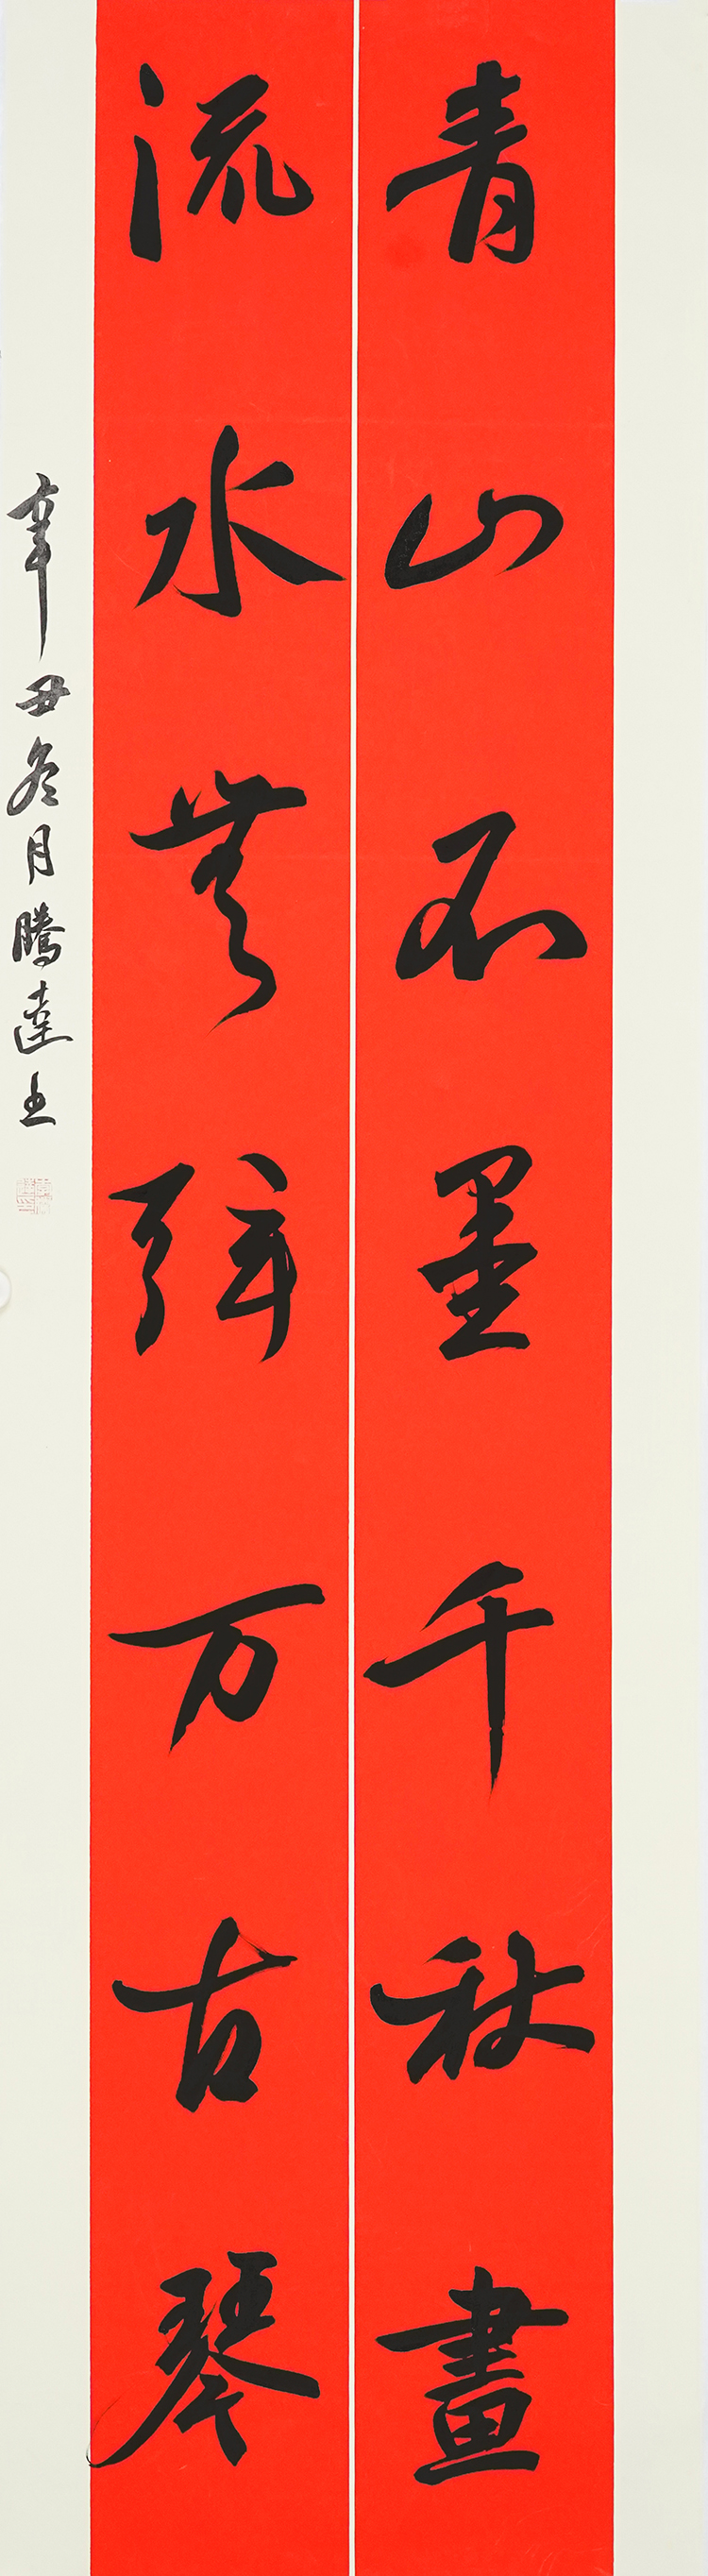 青山不墨千秋畫
流水無弦万古琴
辛丑冬月騰達書